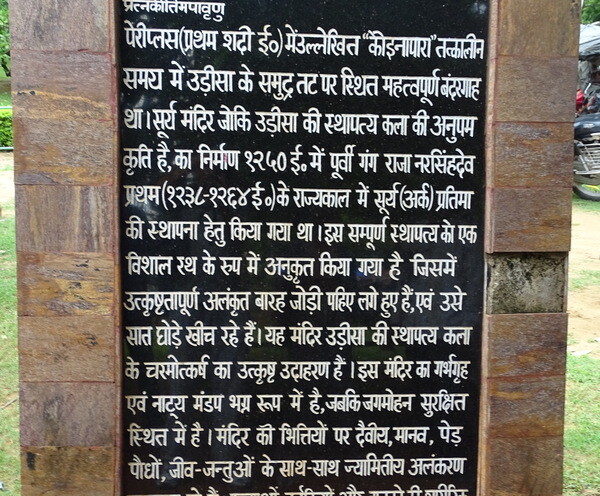 पेरीप्लस(प्रथम शदी ई०) में उल्लेखित "कौइनापारा" तत्कालीन
समय में उड़ीसा के समुद्र तट पर स्थित महत्वपूर्ण बंदरगाह
था। सूर्य मंदिर जोकि उड़ीसा की स्थापत्य कला की अनुपम
कृति है, का निर्माण १२५० ई. में पूर्वी गंग राजा नरसिंहदेव
प्रथम(१२३८-१२६४ ई०) के राज्यकाल में सूर्य (अर्क) प्रतिमा
की स्थापना हेतु किया गया था। इस सम्पूर्ण स्थापत्य को एक
विशाल रथ के रुप में अनुकृत किया गया है जिसमें
उत्कृष्टतापूर्ण अलंकृत बारह जोड़ी पहिए लगे हुए हैं, एवं उसे
सात घोड़े खींच रहे हैं। यह मंदिर उड़ीसा की स्थापत्य कला
के चरमोत्कर्ष का उत्कृष्ट उदाहरण है। इस मंदिर का गर्भगृह
एवं नाट्य मंडप भग्न रूप में है, जबकि जगमोहन सुरक्षित
स्थित में है। मंदिर की भित्तियों पर दैवीय, मानव, पेड़
पौधों, जीव-जन्तुओं के साथ-साथ ज्यामितीय अलंकरण